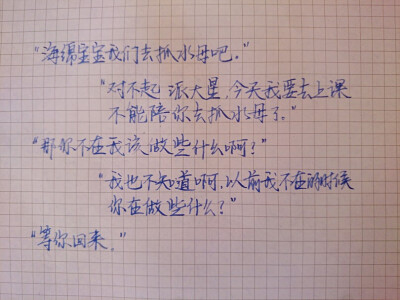 "海绵宝宝我们去抓水母吧."
"对不起 派大星,今天我要去上课
不能陪你去抓水母了."
"那你不在我该做些什么啊?"
"我也不知道啊,以前我不在的时候
你在做些什么?"
"等你回来."